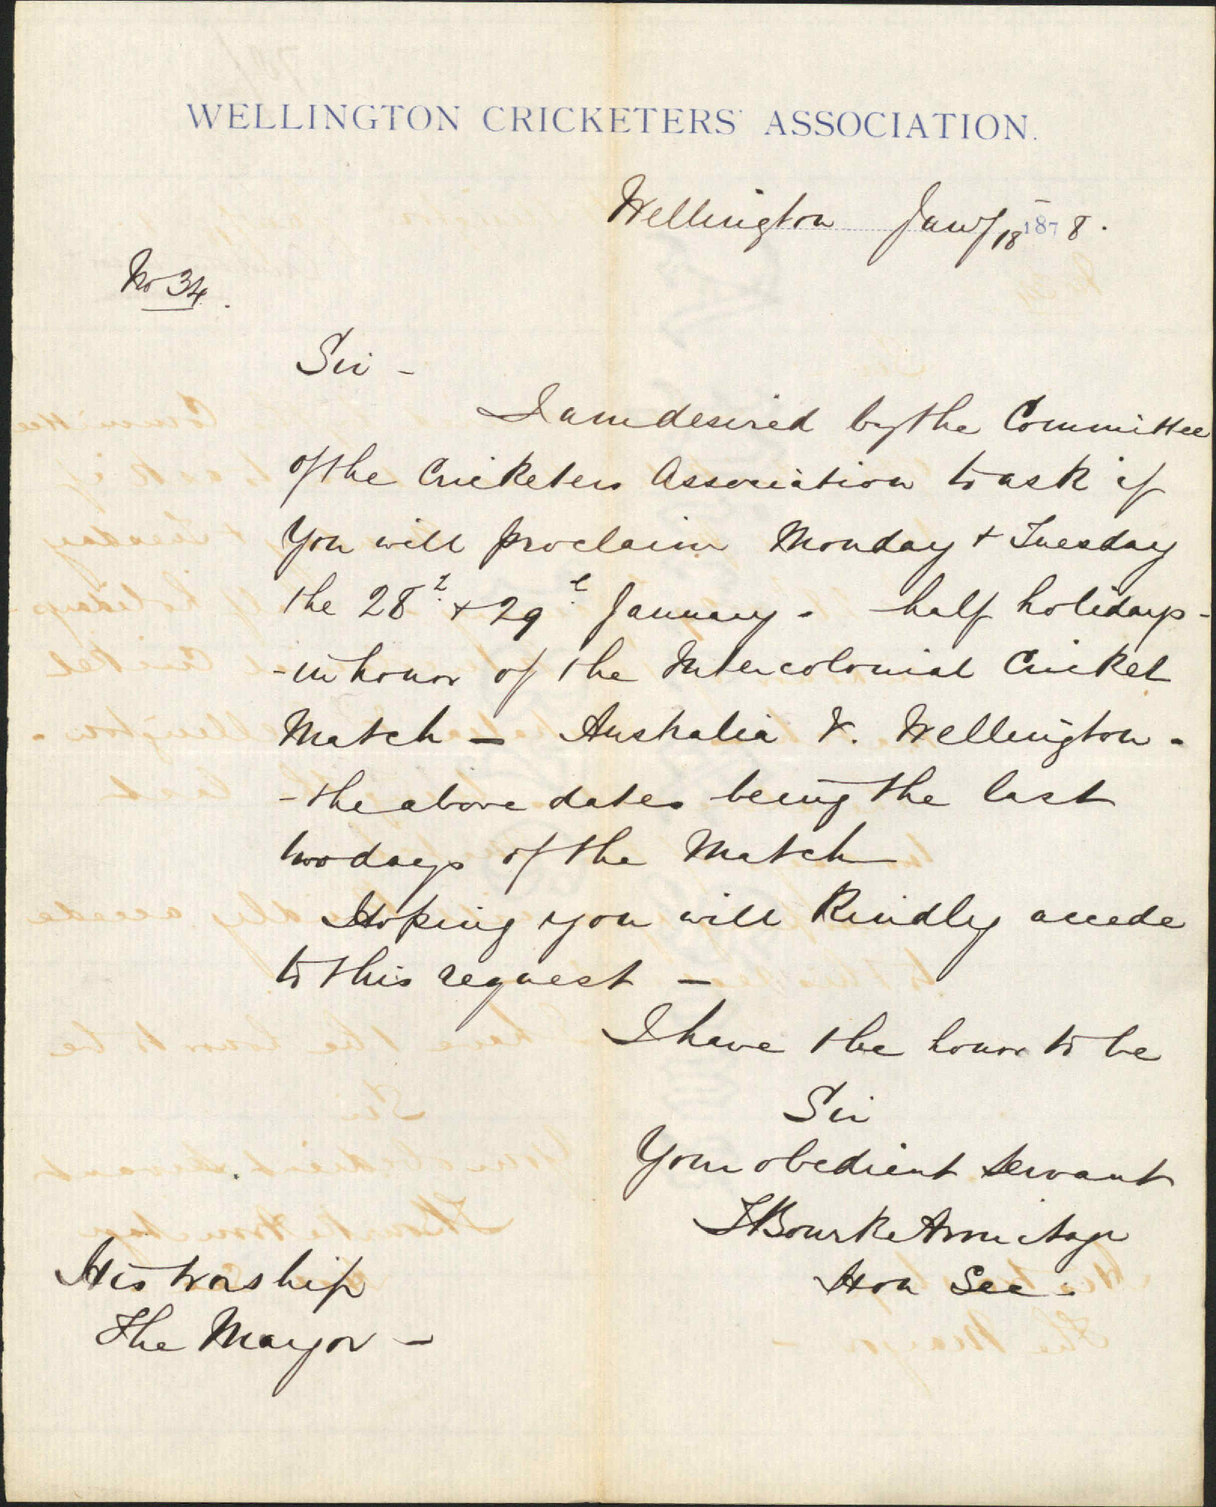 WELLINGTON CRICKETERS' ASSOCIATION.
Wellington Jany 18 1878.
No 34.
Sir -
I am desired by the Committee
of the Cricketers Association to ask if
You will proclaim Monday & Tuesday
the 28th & 29th January - half holidays -
- in honor of the Intercolonial Cricket
Match - Australia V. Wellington -
- the above dates being the last
two days of the Match
Hoping you will Kindly accede
to this request -
I have the honor to be
Sir
Your obedient Servant
Bourke Armitage
Hon Sec.
His Worship
The Mayor -